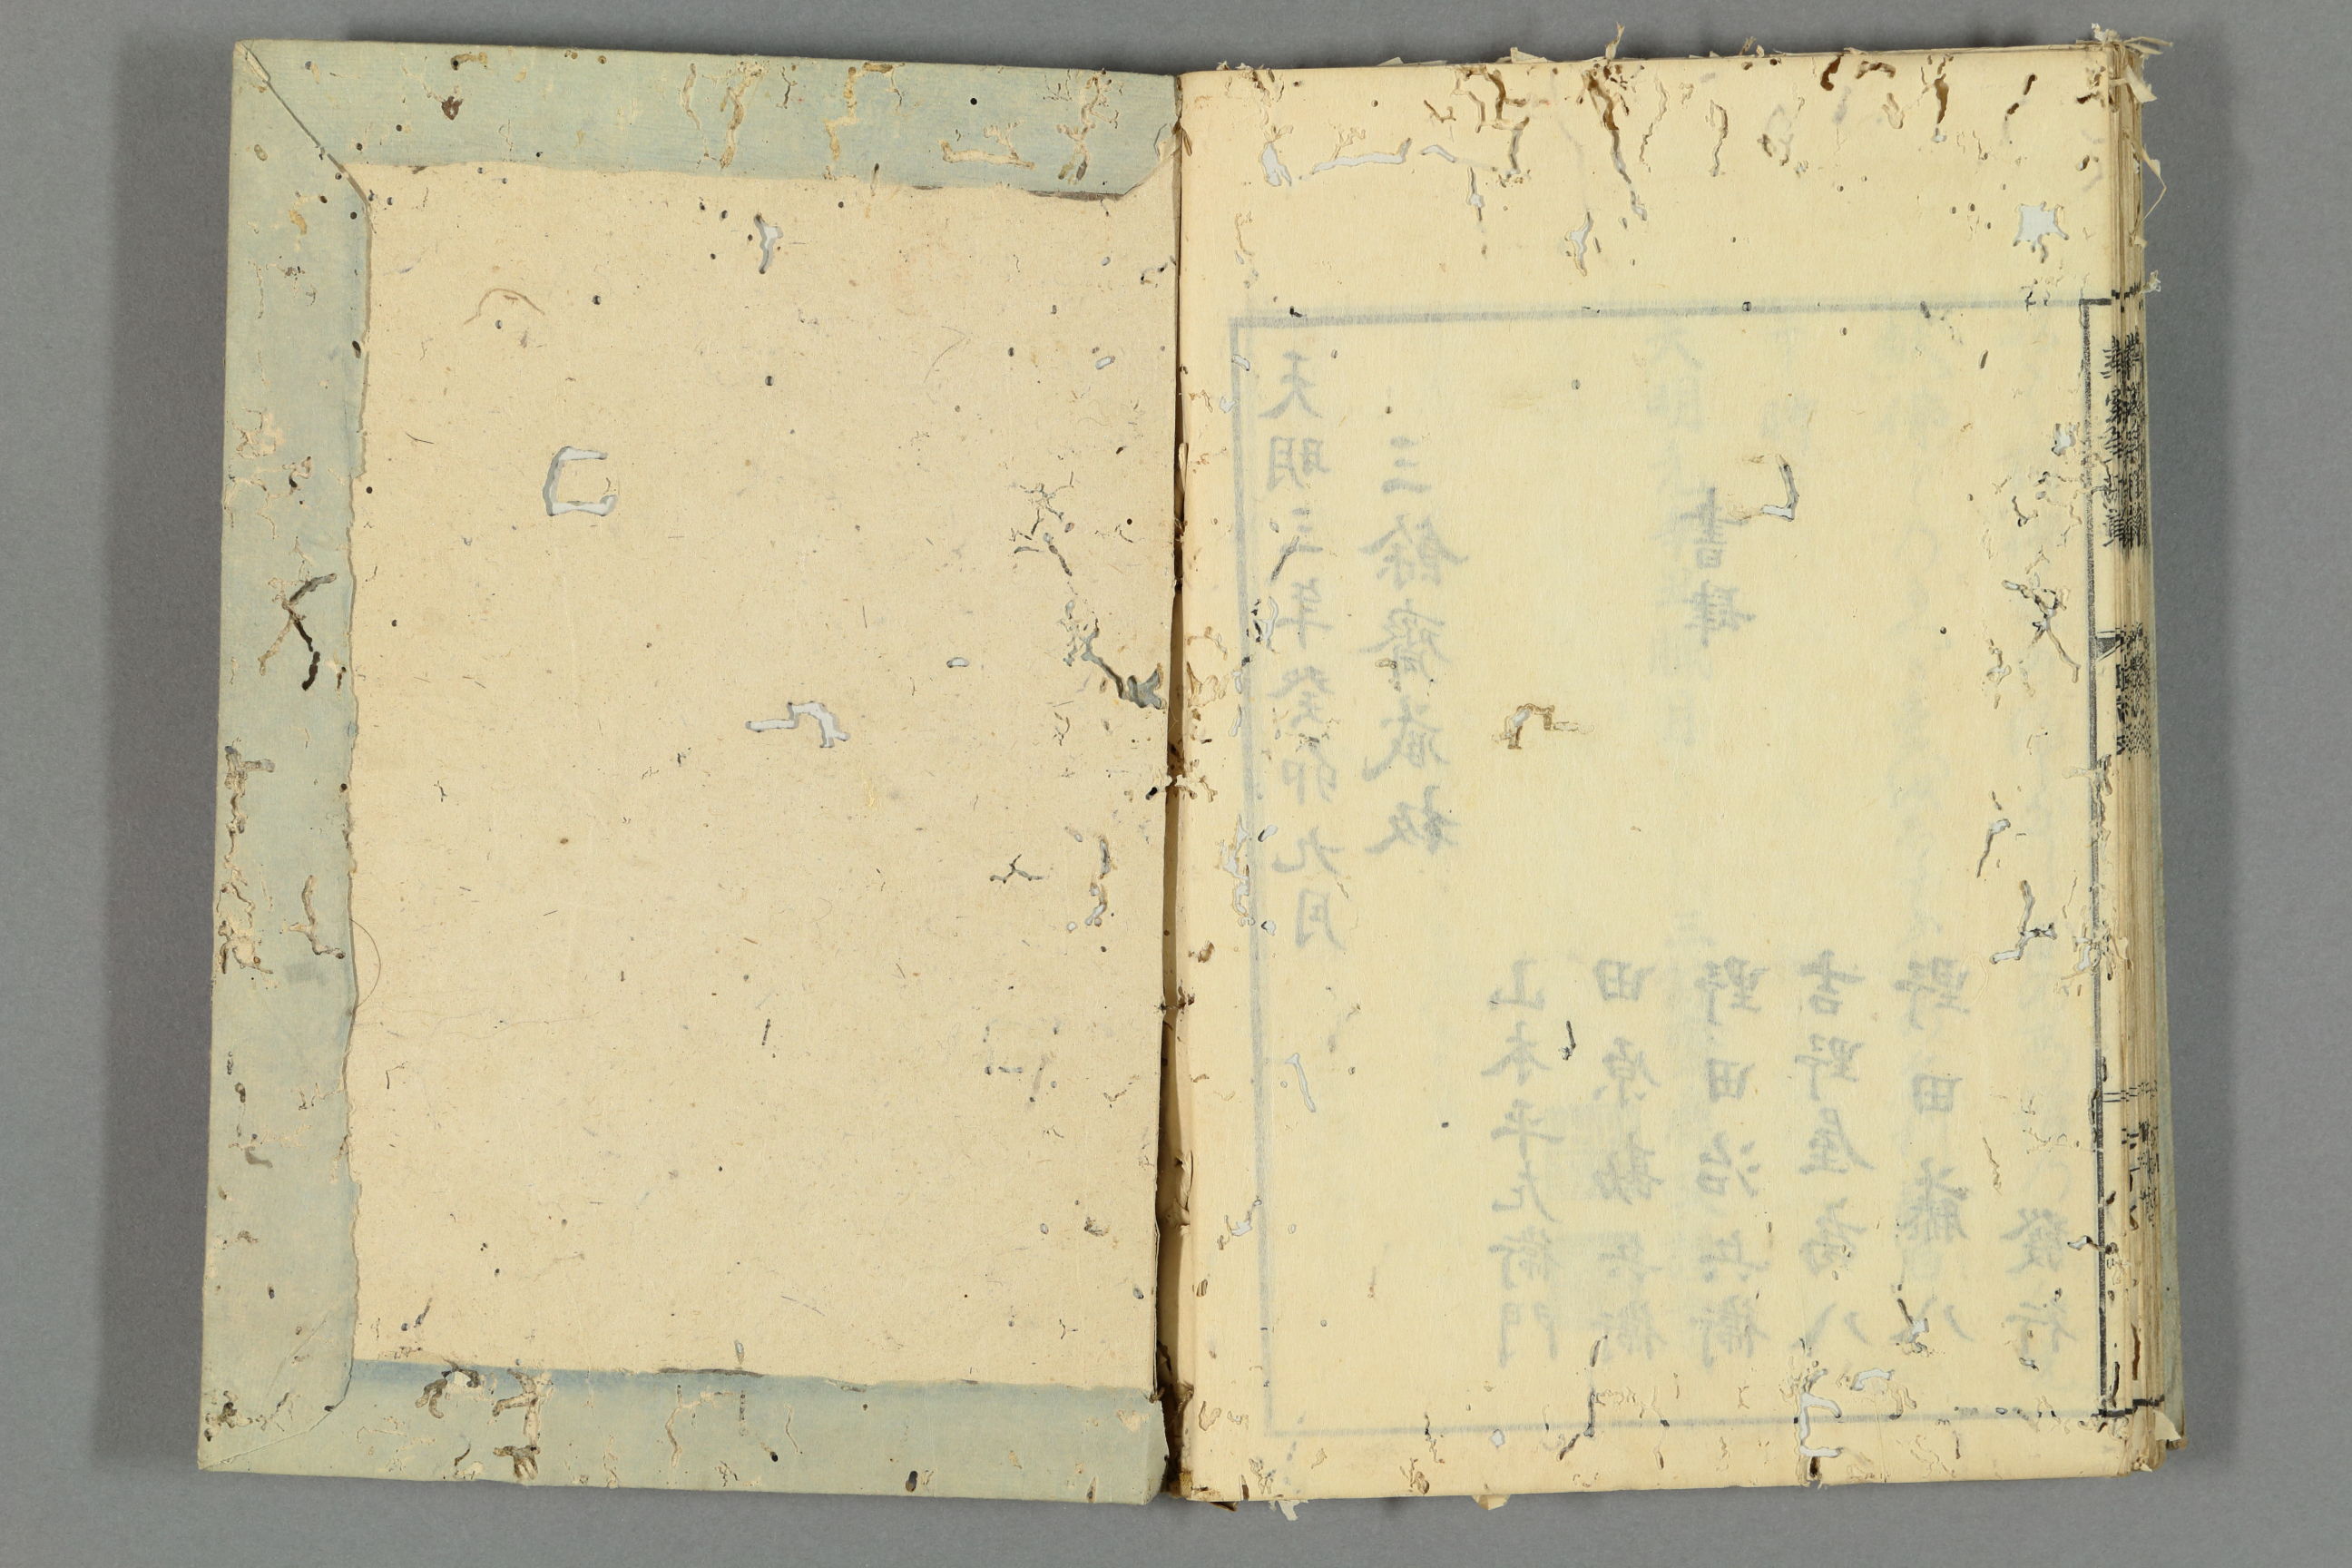 天明三年癸卯九月
三餘齋藏板
書肆
山本平左衛門
田原勘兵衛
野田治兵衛
吉野屋為八
野田藤八
發行